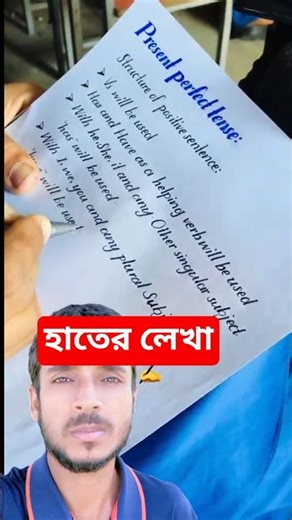 Present perfect tense:
Structure of positive sentence:
➤ V₃ will be used
➤ Has and Have as a helping verb will be used
➤ With he, she, it and any Other singular subject
"has" will be used
➤ With I, we, you and any plural Subj
will be use
হাতের লেখা